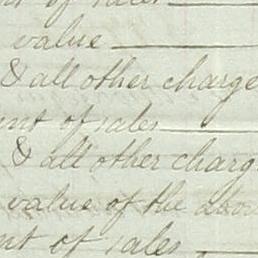 of sales
value
& all other charge
nt of sales
& all other charg
value of the above
nt of sales